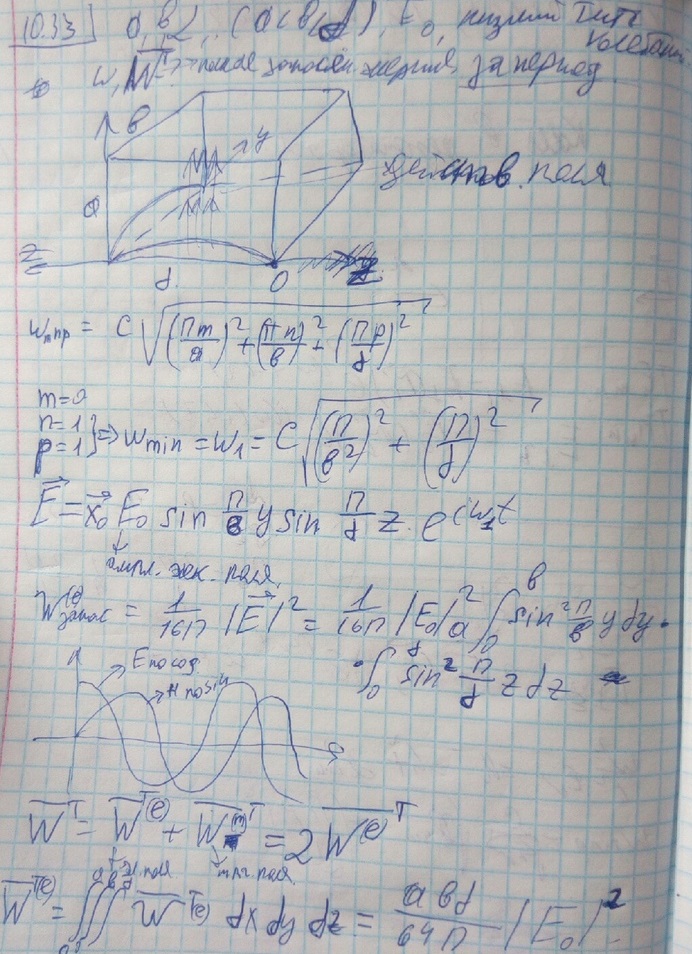 10.33 a, b, d, (a<b<d), E₀, низший тип колебаний
ω, W̅ᵀ - полная запасён. энергия за период
b
y
a
действ. поля
z
d
0
ω_mnp = c √((πm/a)² + (πn/b)² + (πp/d)²)
m=0
n=1
p=1 } => ω_min = ω₁ = c √((π/b²)² + (π/d)²)
E⃗ = x⃗₀ E₀ sin π/b y sin π/d z · e^{iω₁t}
ампл. элек. поля.
W^{(e)}_{запас} = 1/16π |E⃗|² = 1/16π |E₀|² a ∫₀^b sin² π/b y dy ·
· ∫₀^d sin² π/d z dz =
E по cos
H по sin
W̅ᵀ = W̅ᵀ⁽ᵉ⁾ + W̅⁽ᵐ⁾ᵀ = 2 W̅⁽ᵉ⁾ᵀ
эл. поля
маг. поля.
W̅ᵀ⁽ᵉ⁾ = ∫∫∫ w̅ᵀ⁽ᵉ⁾ dx dy dz = abd/64π |E₀|².